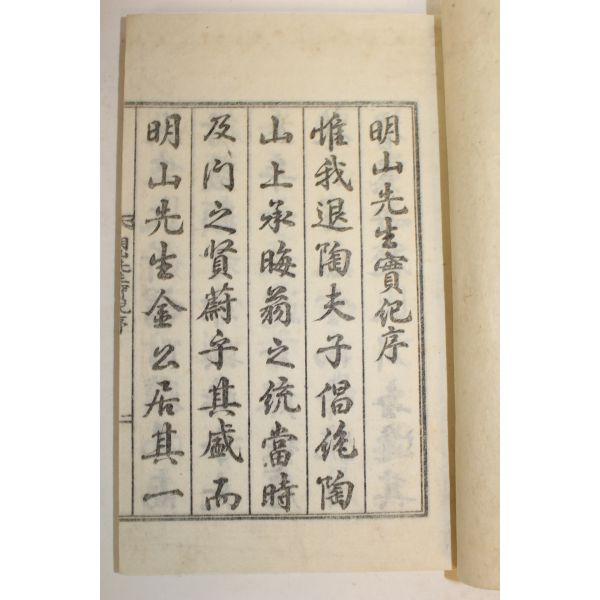 明山先生實紀序
惟我退陶夫子倡絶陶
山上承晦翁之統當時
及門之賢蔚乎其盛而
明山先生金公居其一
明山先生實紀序